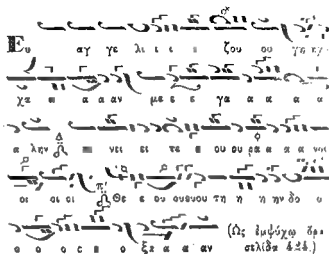 Ευ αγ γε λι ι ι ι ζου ου γη
χα α α αν με ε ε γα α α α α
α λην αι νει ει τε ου ου ρα α α α νοι
οι οι οι Θε ε ου ου ου ου τη η η ην δο ο
ο ο ο ο ο ξα α α αν (Ως ἐμψύχῳ ὅρ.)
σελίδα 424.)